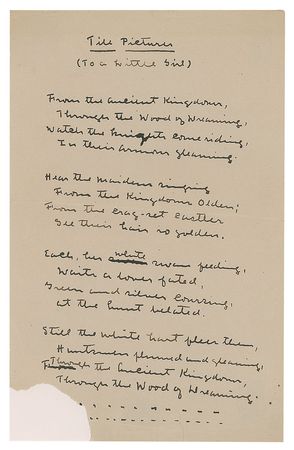 Tile Pictures
(To a Little Girl)
From the Ancient Kingdom,
Through the Wood of Dreaming,
Watch the knights come riding,
In their armour gleaming.
Hear the maidens singing
From the Kingdoms Olden;
From the crag-set castles
See their hair so golden.
Each, her white swans feeding,
Waits a lover fated,
Green and silver coursing,
At the hunt belated.
Still the white hart flees them,
Huntsmen plumed and gleaming,
Through the Ancient Kingdom,
Through the Wood of Dreaming.